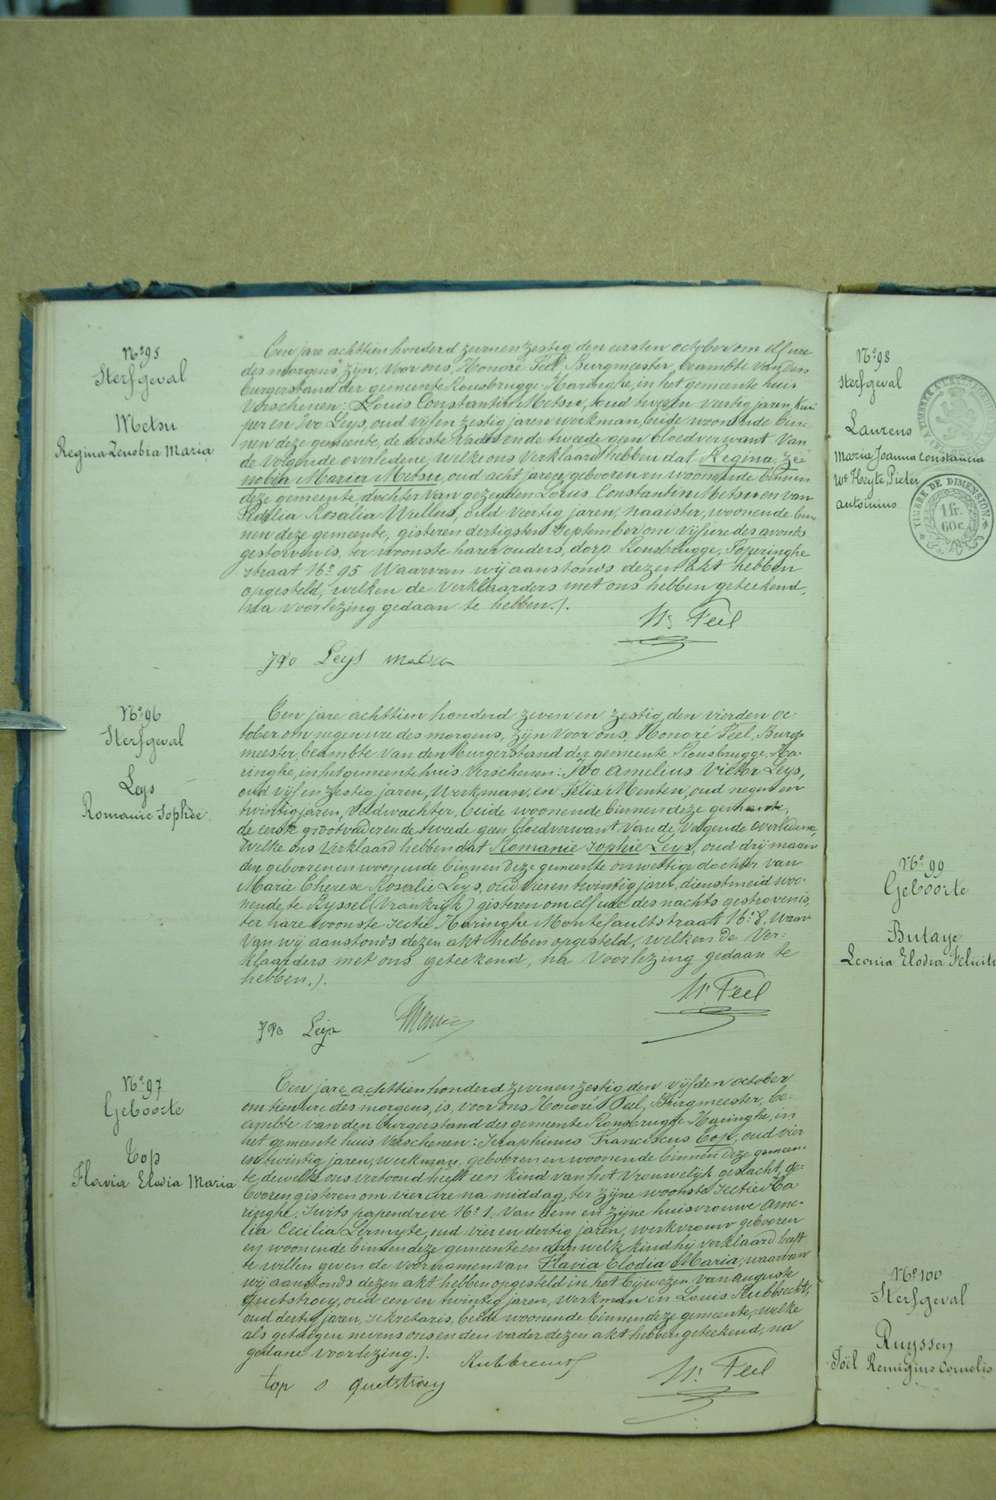 N° 95
Sterfgeval
Metsu
Regina Zenobia Maria
Een jare achttien honderd zevenenzestig den eersten october om elf ure
des morgens zijn voor ons, Honoré Feel Burgmeester, beambte van den
burgerstand der gemeente Rousbrugge Haringhe, in het gemeente huis
verschenen: Louis Constantin Metsu, oud twee en veertig jaren, kui
per en Ivo Leys, oud vijf en zestig jaren werkman, beide woonende bin-
nen deze gemeente, de eerste vader en de tweede geen bloedverwant van
de volgende overledene, welke ons verklaard hebben dat Regina Ze-
nobia Maria Metsu, oud acht jaren, geboren en woonende binnen
deze gemeente dochter van gezegden Louis Constantin Metsu en van
Rosalia Wullens, oud veertig jaren, naaister, woonende bin-
nen deze gemeente, gisteren dertigsten September om vijf ure des avonds
gestorven is, ter woonste harer ouders, dorp Rousbrugge, Poperinghe
straat N° 95 Waarvan wij aanstonds dezen akt hebben
opgesteld, welken de verklaarders met ons hebben geteekend,
na voorlezing gedaan te hebben./.
H. Feel
Ivo Leys metsu
N° 96
Sterfgeval
Leys
Romanie Sophie
Een jare achttien honderd zeven en zestig, den vierden oc-
tober om negen ure des morgens, zijn voor ons, Honoré Feel, Burg-
meester, beambte van den Burgerstand der gemeente Rousbrugge Ha-
ringhe, in het gemeentehuis verschenen: Ivo Amelius Victor Leys,
oud vijf en zestig jaren, Werkman, en Felix Menten, oud negen en
twintig jaren, Veldwachter, beide woonende binnen deze gemeente,
de eerste grootvader en de tweede geen bloedverwant van de volgende overledene,
welke ons verklaard hebben dat Romanie Sophie Leys, oud drij maan
den geboren en woonende binnen deze gemeente onwettige dochter van
Marie Therese Rosalie Leys, oud vier en twintig jaren, dienstmeid woo-
nende te Ryssel (Vrankrijk) gisteren om elf ure des nachts gestorven is,
ter hare woonste sectie Haringhe Montefaultstraat N° 8. Waar
van wij aanstonds dezen akt hebben opgesteld, welken de ver-
klaarders met ons geteekend, na voorlezing gedaan te
hebben./.
H. Feel
Ivo Leys
N° 97
Geboorte
Top
Flavia Elodia Maria
Een jare achttien honderd zevenenzestig, den vijfden october
om tien ure des morgens, is, voor ons Honoré Feel, Burgmeester, be-
ambte van den burgerstand der gemeente Rousbrugge Haringhe, in
het gemeente huis verschenen: Seraphinus Franciscus Top, oud vier
en twintig jaren, werkman, geboren en woonende binnen deze gemeen-
te, dewelke ons vertoond heeft een kind van het vrouwelijk geslacht, ge-
boren gisteren om vier ure na middag, ter zijne woonste sectie Ha
ringhe, N° 1. van hem en zijne huisvrouwe Ame-
lia Cecilia Lermyte, oud vier en dertig jaren, werkvrouw geboren
en woonende binnen deze gemeente en aan welk kind hij verklaard heeft
te willen geven de voornamen van Flavia Elodia Maria, waarvan
wij aanstonds dezen akt hebben opgesteld in het bijwezen van Auguste
Quetstroey, oud een en twintig jaren, werkman en Louis Rubbrecht,
oud dertig jaren, sekretaris, beide woonende binnen deze gemeente, welke
als getuigen nevens ons en den vader dezen akt hebben geteekend, na
gedane voorlezing./.
top s quetstroey
H. Feel
N° 98
Sterfgeval
Laurens
Maria Joanna Constancia
We Heyte Pieter
Antoinius
TIMBRE DE DIMENSION
1 fr.
60 c.
N° 99
Geboorte
Butaye
Leonia Elodia
N° 100
Sterfgeval
Ruyssen
Joël Remigius Cornelis